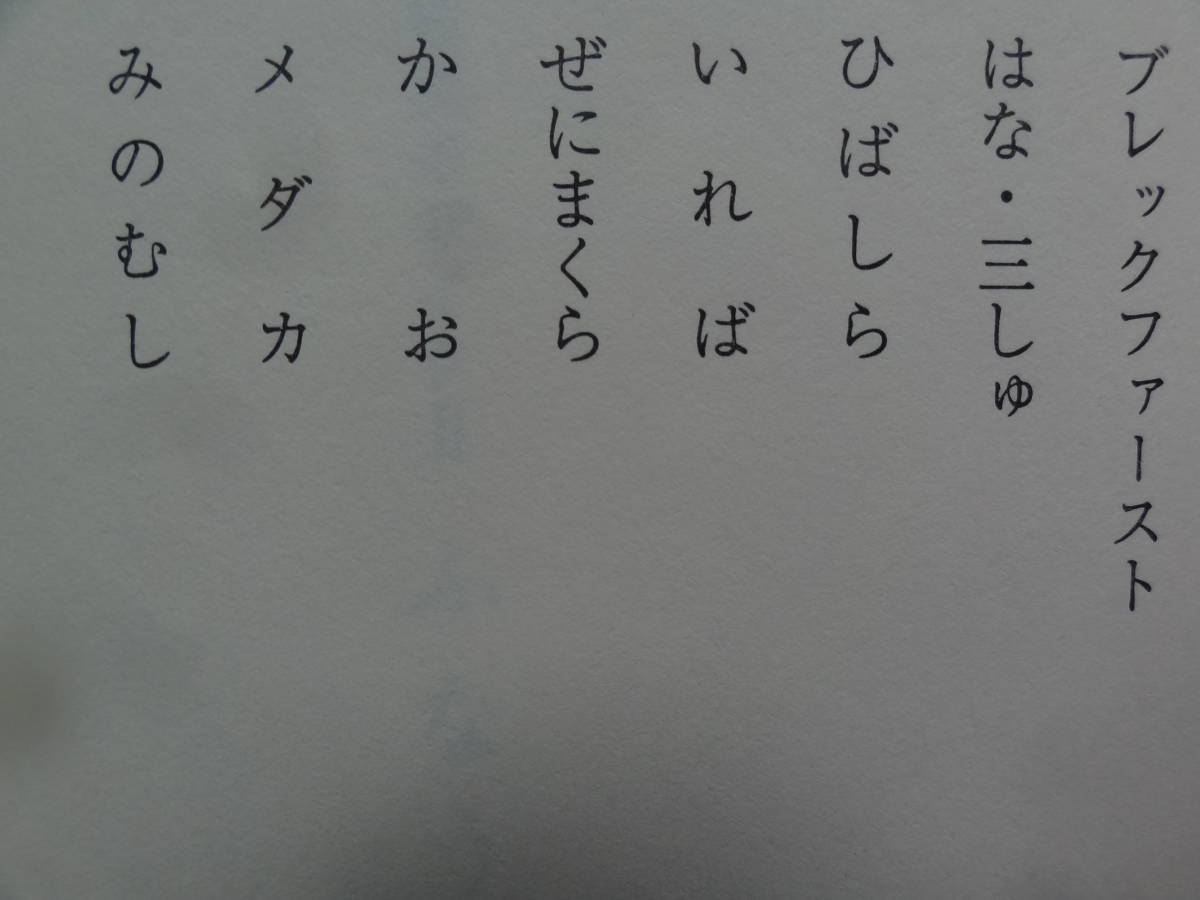 ブレックファースト
はな・三しゅ
ひばしら
いれば
ぜにまくら
かお
メダカ
みのむし